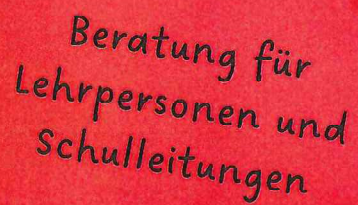 Beratung für
Lehrpersonen und
Schulleitungen